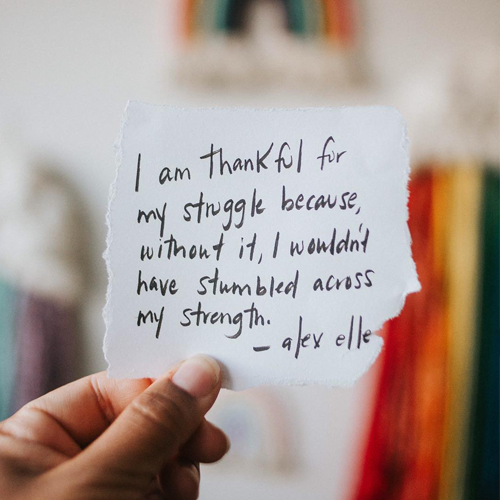 I am thankful for
my struggle because,
without it, I wouldn't
have stumbled across
my strength.
- alex elle